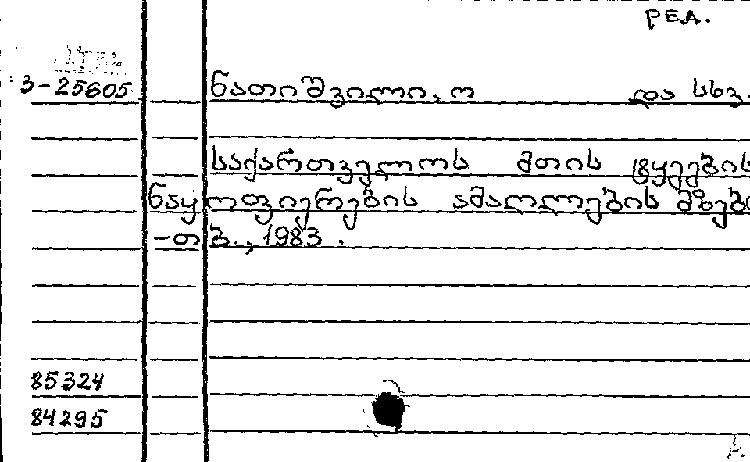 РЕД.
3-25605 ნათიშვილი, ო და სხვ.
საქართველოს მთის ტყეების
ნაყოფიერების ამაღლების გზები
-თბ., 1983.
85324
84295